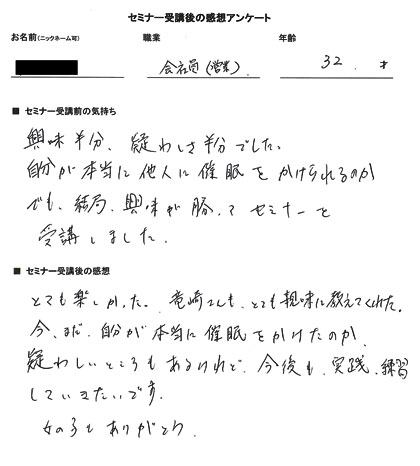 セミナー受講後の感想アンケート
お名前(ニックネーム可) 職業 年齢
会社員(営業) 32 才
■ セミナー受講前の気持ち
興味半分、疑わしさ半分でした。
自分が本当に他人に催眠をかけられるのか
でも、結局、興味が勝ってセミナーを
受講しました。
■ セミナー受講後の感想
とても楽しかった。竜崎さんも、とても親味に教えてくれた。
今、まだ、自分が本当に催眠をかけたのか
疑わしいところもあるけれど、今後も、実践、練習
していきたいです。
女の子もありがとう。